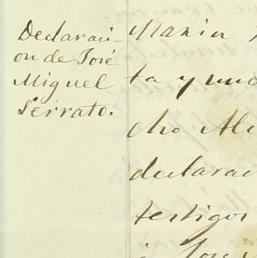 Declaraci-
on de José
Miguel
Serrato.
Maria
ta y una
cho Al
declarac
testigos